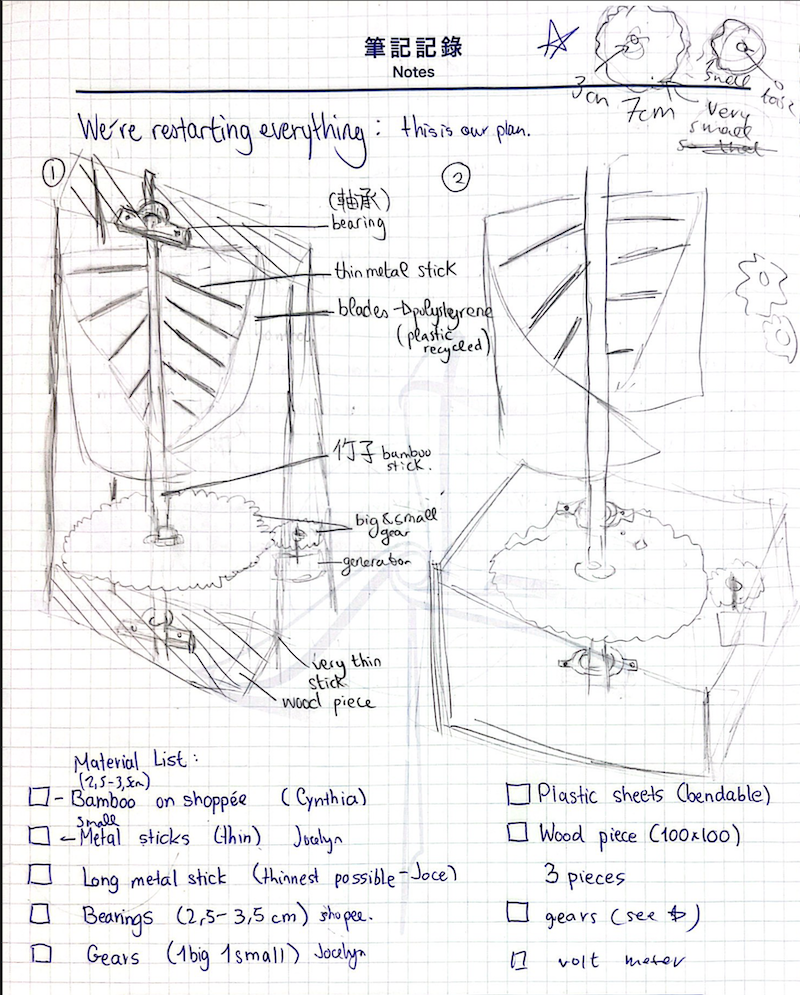 筆記記錄
Notes
3cm
7cm
small
very
small
We're restarting everything: this is our plan.
①
②
(軸承)
bearing
thin metal stick
blades → polystyrene
(plastic
recycled)
竹子 bamboo
stick.
big & small
gear
generation
very thin
stick
wood piece
Material List:
(2,5-3,5cm)
- Bamboo on shoppée (Cynthia)
small
← Metal sticks (thin) Jocelyn
Long metal stick (thinnest possible - Joce)
Bearings (2,5-3,5 cm) shopee.
Gears (1big 1small) Jocelyn
Plastic sheets (bendable)
Wood piece (100x100)
3 pieces
gears (see ☆)
volt meter